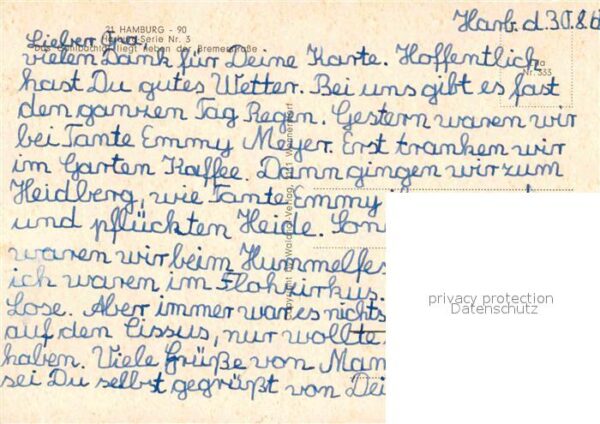 21 HAMBURG - 90
Harburg-Serie Nr. 3
liegt neben der Bremerstraße
Nr. 333
Harb. d. 30.8.6
Lieber
vielen Dank für Deine Karte. Hoffentlich
hast Du gutes Wetter. Bei uns gibt es fast
den ganzen Tag Regen. Gestern waren wir
bei Tante Emmy Meyer. Erst tranken wir
im Garten Kaffee. Dann gingen wir zum
Heidberg, wie Tante Emmy
und pflückten Heide. Son
waren wir beim Hummelfes
ich waren im Flohzirkus.
Lose. Aber immer war es nichts
auf den Cissus, nur wollte
haben. Viele Grüße von Mam
sei Du selbst gegrüßt von Dei
privacy protection
Datenschutz